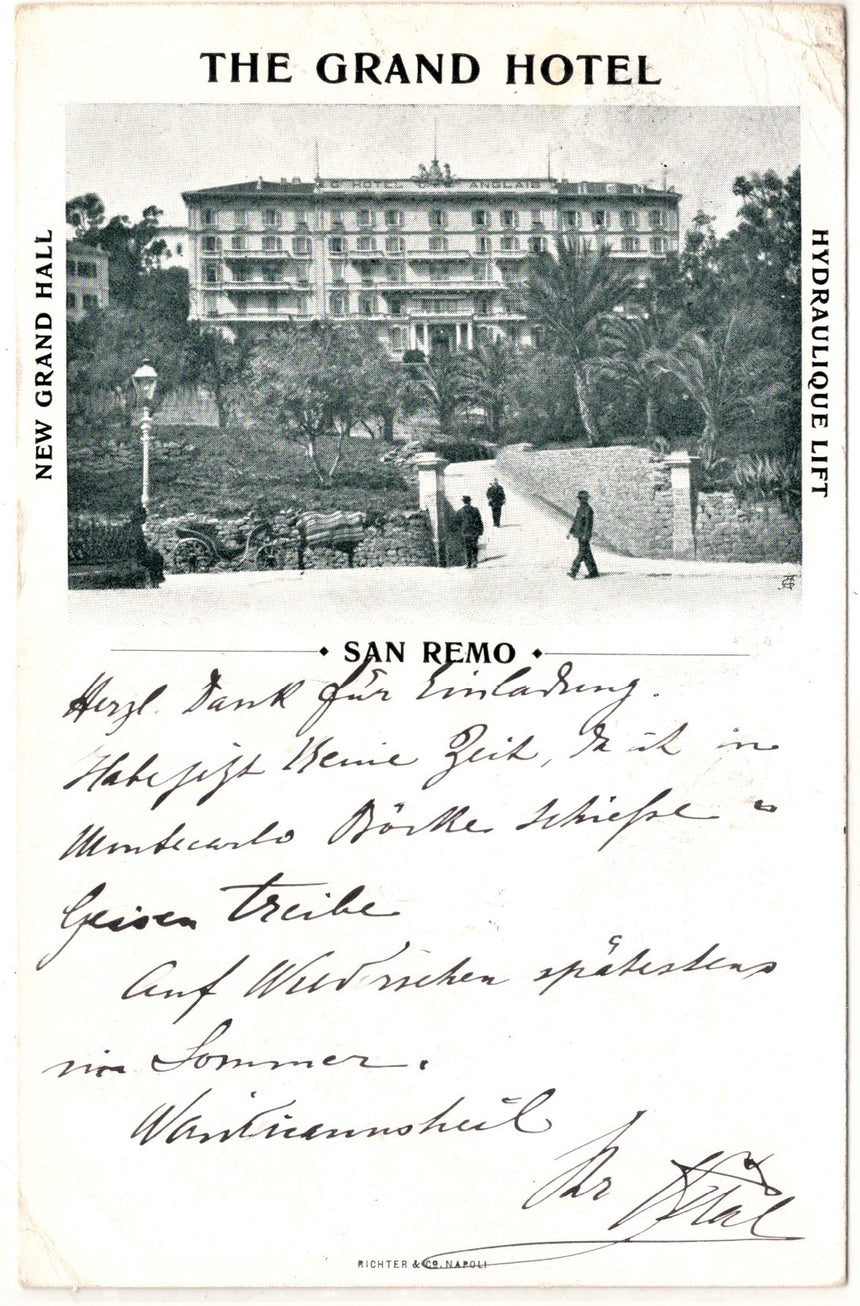 THE GRAND HOTEL
GD HOTEL DES ANGLAIS
NEW GRAND HALL
HYDRAULIQUE LIFT
SAN REMO
Herzl. Dank für Einladung.
Habe jetzt keine Zeit, da ich in
Montecarlo Böcke schieße u
Geisen treibe
Auf Wiedersehen spätestens
im Sommer.
Waidmannsheil
Ihr
RICHTER & Co. NAPOLI